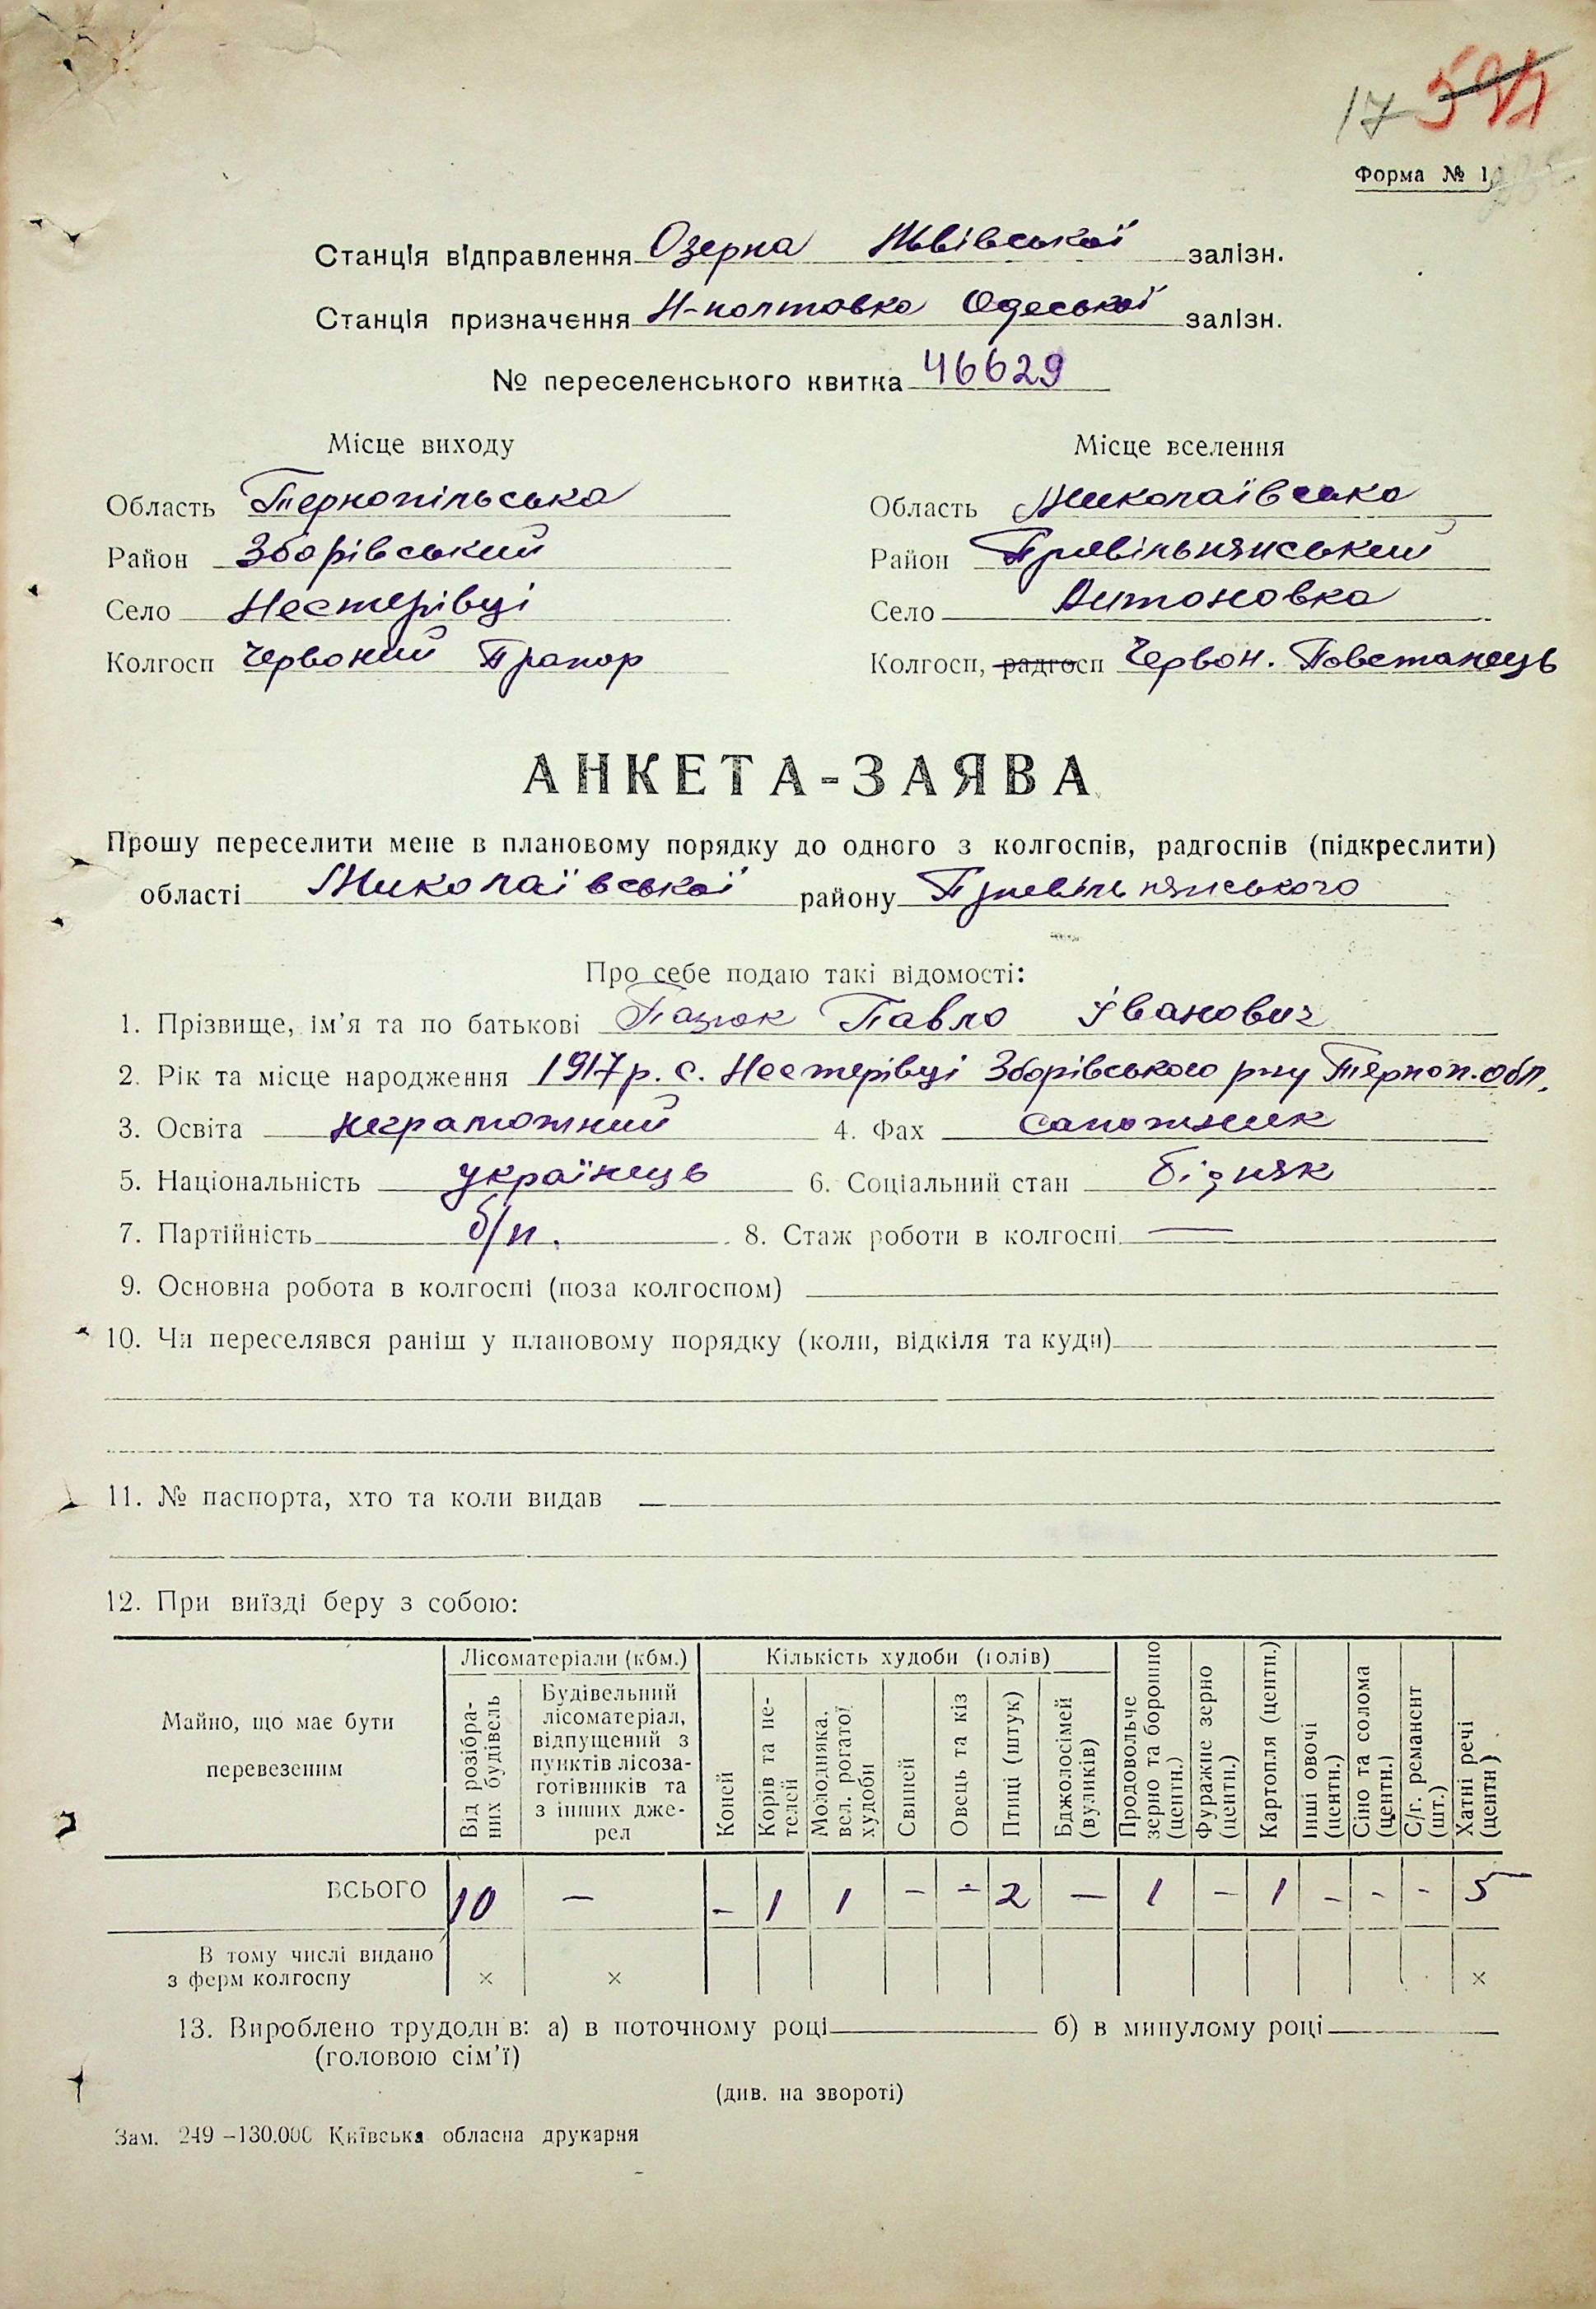 17 594
Форма № 1
Станція відправлення Озерна Львівської залізн.
Станція призначення Н-полтавка Одеської залізн.
№ переселенського квитка 46629
Місце виходу Місце вселення
Область Тернопільська Область Миколаївська
Район Зборівський Район Привільнянський
Село Нестерівці Село Антоновка
Колгосп Червоний Прапор Колгосп, радгосп Червон. Повстанець
АНКЕТА-ЗАЯВА
Прошу переселити мене в плановому порядку до одного з колгоспів, радгоспів (підкреслити)
області Миколаївської району Привільнянського
Про себе подаю такі відомості:
1. Прізвище, ім'я та по батькові Пазюк Павло Іванович
2. Рік та місце народження 1917 р. с. Нестерівці Зборівського р-ну Терноп. обл.
3. Освіта неграмотний 4. Фах сапожник
5. Національність українець 6. Соціальний стан бідняк
7. Партійність б/п. 8. Стаж роботи в колгоспі —
9. Основна робота в колгоспі (поза колгоспом)
10. Чи переселявся раніш у плановому порядку (коли, відкіля та куди)
11. № паспорта, хто та коли видав
12. При виїзді беру з собою:
Майно, що має бути перевезеним
Лісоматеріали (кбм.)
Від розібраних будівель
Будівельний лісоматеріал, відпущений з пунктів лісозаготівників та з інших джерел
Кількість худоби (голів)
Коней
Корів та нетелей
Молодняка, вел. рогатої худоби
Свиней
Овець та кіз
Птиці (штук)
Бджолосімей (вуликів)
Продовольче зерно та борошно (центн.)
Фуражне зерно (центн.)
Картопля (центн.)
Інші овочі (центн.)
Сіно та солома (центн.)
С/г. реманент (шт.)
Хатні речі (центн)
ВСЬОГО 10 — – 1 1 – – 2 — 1 – 1 – – – 5
В тому числі видано з ферм колгоспу × × ×
13. Вироблено трудоднів: а) в поточному році б) в минулому році
(головою сім'ї)
(див. на звороті)
Зам. 249–130.000 Київська обласна друкарня